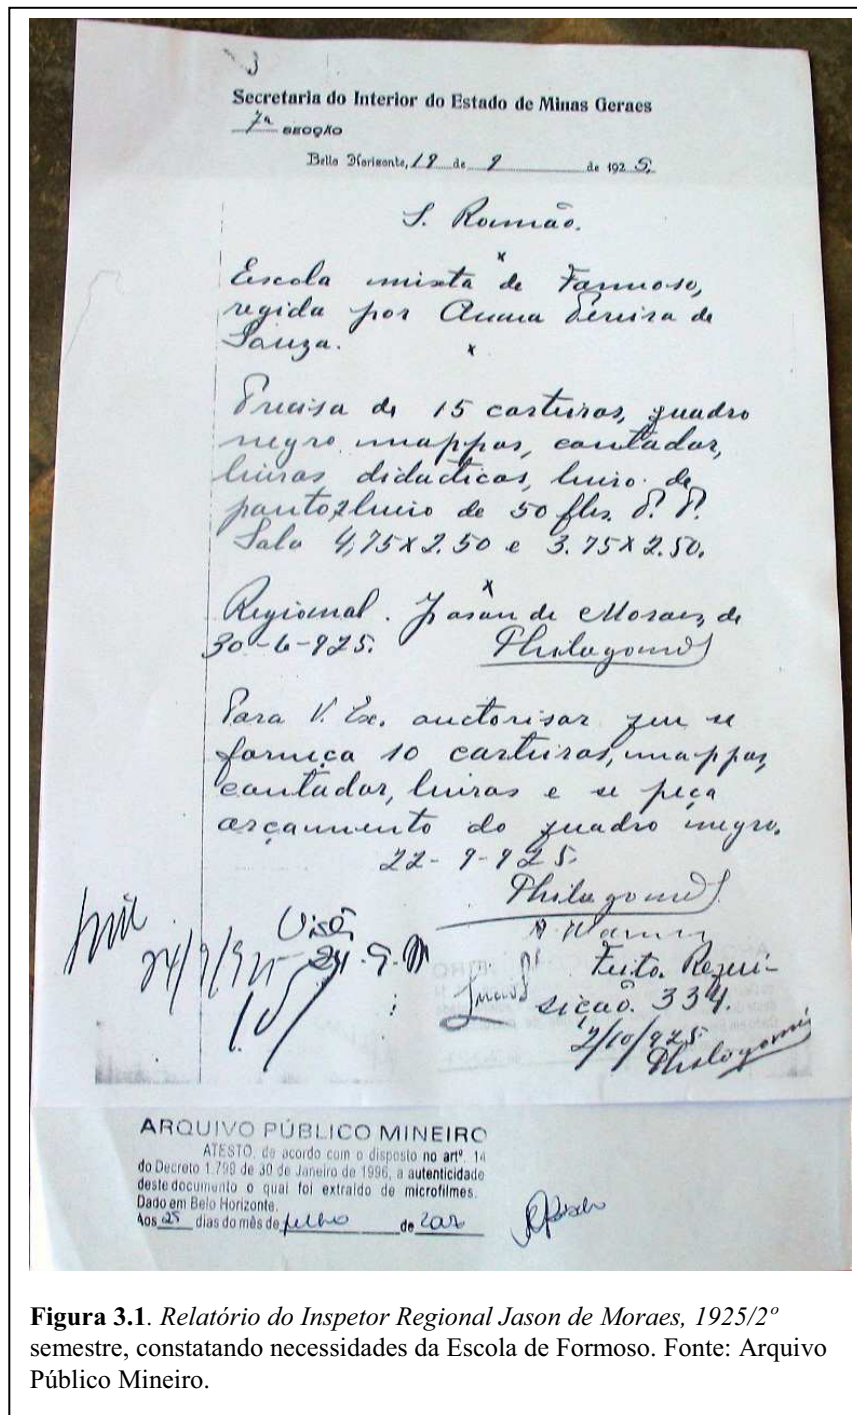 Secretaria do Interior do Estado de Minas Geraes
7ª SECÇÃO
Bello Horizonte, 19 de 9 de 1925.
S. Romão.
x
Escola mixta de Formoso,
regida por Anna Pereira de
Souza.
x
Precisa de 15 carteiras, quadro
negro, mappas, contador,
livros didacticos, livro de
ponto, livro de 50 fls. P. P.
Sala 4,75 x 2.50 e 3.75 x 2.50.
x
Regional. Jason de Moraes, de
30-6-925. Philogomes
Para V. Ex. auctorisar que se
forneça 10 carteiras, mappas,
contador, livros e se peça
orçamento do quadro negro.
22-9-925.
Philogomes
Visto
24/9/925 24-9
Feito. Requi-
sição. 334.
2/10/925.
Philogomes
ARQUIVO PÚBLICO MINEIRO
ATESTO, de acordo com o disposto no artº. 14
do Decreto 1.799 de 30 de Janeiro de 1996, a autenticidade
deste documento o qual foi extraído de microfilmes.
Dado em Belo Horizonte.
Aos 25 dias do mês de julho de
Figura 3.1. Relatório do Inspetor Regional Jason de Moraes, 1925/2º
semestre, constatando necessidades da Escola de Formoso. Fonte: Arquivo
Público Mineiro.